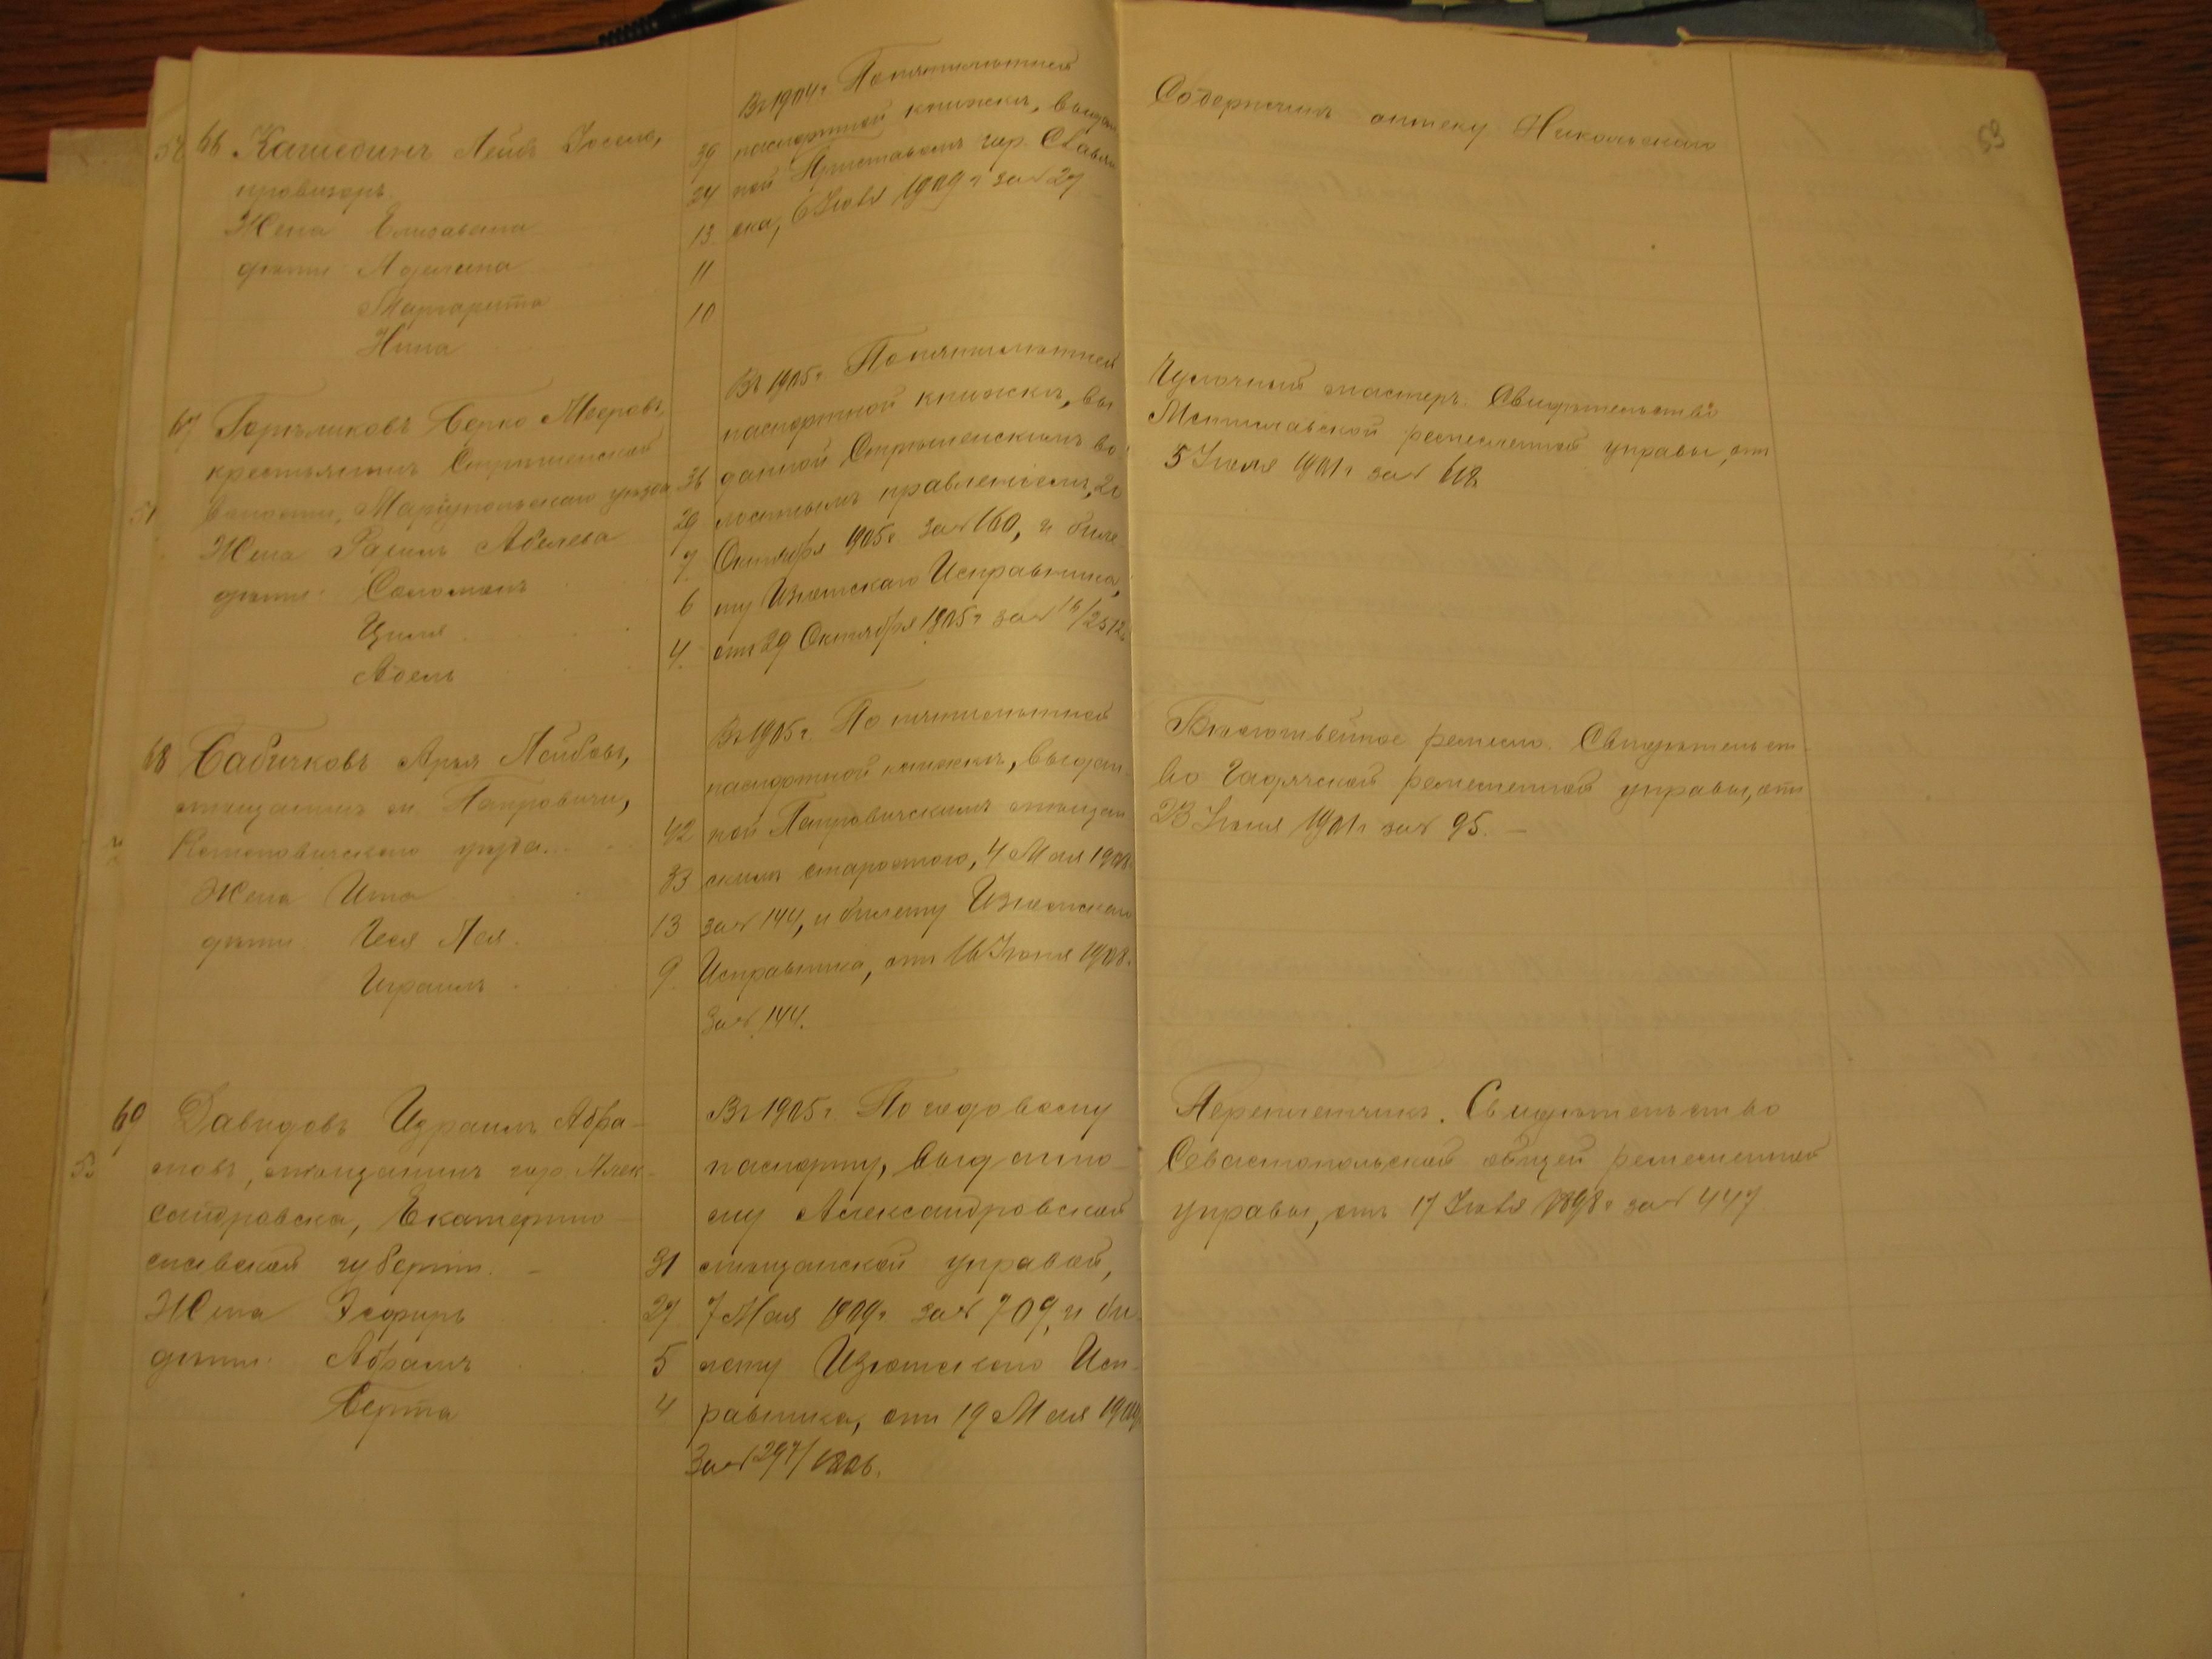 53
66 Кашединъ Лейб Іосел.,
провизоръ. 39
Жена Елизавета 24
дѣти: Аделина 13
Маргарита 11
Нина 10
Въ 1904 г. По пятилѣтней
паспортной книжкѣ, выдан
ной Приставомъ гор. Славян
ска, 6 Іюля 1909 г. за № 27
Содержитъ аптеку Никольскаго
67 Горѣликовъ Берко Мееровъ,
крестьянинъ
волости, Маріупольскаго уѣзда 36
Жена Рахиль Абелева 29
дѣти: Соломонъ 7
Циля 6
Абель 4
Въ 1905 г. По пятилѣтней
паспортной книжкѣ, вы
данной во
лостнымъ правленіемъ, 20
Октября 1905 г. за № 160, и биле
ту Изюмскаго Исправника,
отъ 29 Октября 1905 г. за №
Чулочный мастеръ. Свидѣтельство
Мстиславской ремесленной управы, отъ
5 Іюля 1901 г. за № 618
68 Бабичковъ Арья Лейбовъ,
мѣщанинъ м.
уѣзда 42
Жена Ита 33
дѣти: Чеся Лея 13
Израиль 9
Въ 1905 г. По пятилѣтней
паспортной книжкѣ, выдан
ной мѣщан
скимъ старостою, 4 Мая 1908
за № 144, и билету Изюмскаго
Исправника, отъ 16 Іюня 1908.
за № 144.
Бѣлошвейное ремесло. Свидѣтельст-
во Гадячской ремесленной управы, отъ
23 Іюня 1901 г. за № 95. —
69 Давидовъ Израиль Абра-
мовъ, мѣщанинъ гор. Алек-
сандровска, Екатерино-
славской губерніи. — 31
Жена Эсфирь 27
дѣти: Абрамъ 5
Берта 4
Въ 1905 г. По годовому
паспорту, выданно-
му Александровской
мѣщанской управой,
7 Мая 1909 г. за № 709, и би-
лету Изюмскаго Исп-
равника, отъ 19 Мая 1909
за № 297/1806.
Переплетчикъ. Свидѣтельство
Севастопольской общей ремесленной
управы, отъ 17 Іюля 1898 г. за № 447